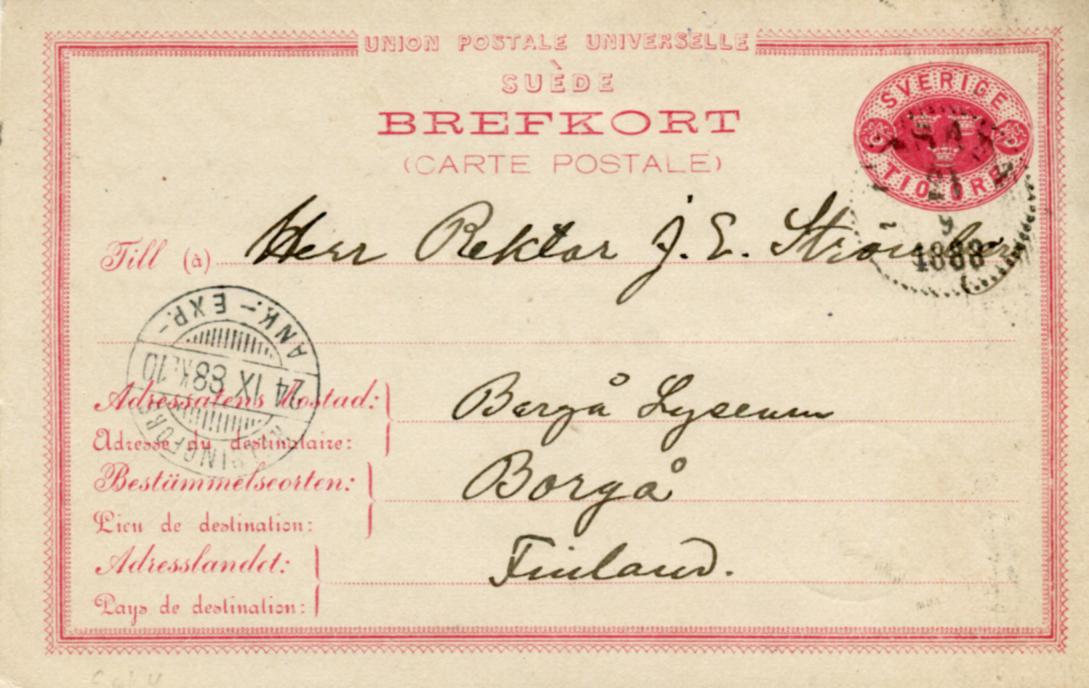 UNION POSTALE UNIVERSELLE
SUÈDE
BREFKORT
(CARTE POSTALE)
SVERIGE
TIO ÖRE
21
9
1888
Till (à) Herr Rektor J. E. Strömberg
ANK.-EXP.-
24 IX 88 Kl. 10
HELSINGFORS
Adressatens bostad: Borgå Lyseum
Adresse du destinataire:
Bestämmelseorten: Borgå
Lieu de destination:
Adresslandet: Finland.
Pays de destination: